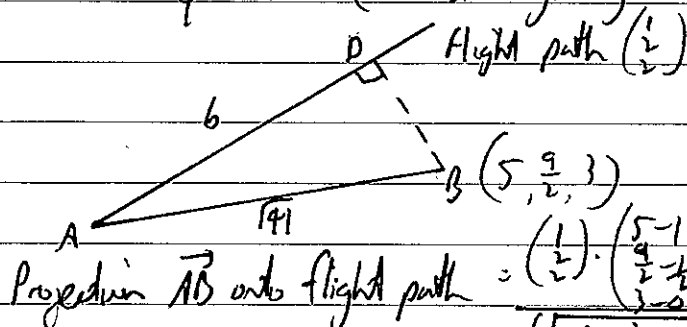 D
flight path (1 2 2)
6
B (5, 9/2, 3)
√41
A
Projection AB onto flight path = (1 2 2) · (5-1 9/2-1/2 3-0